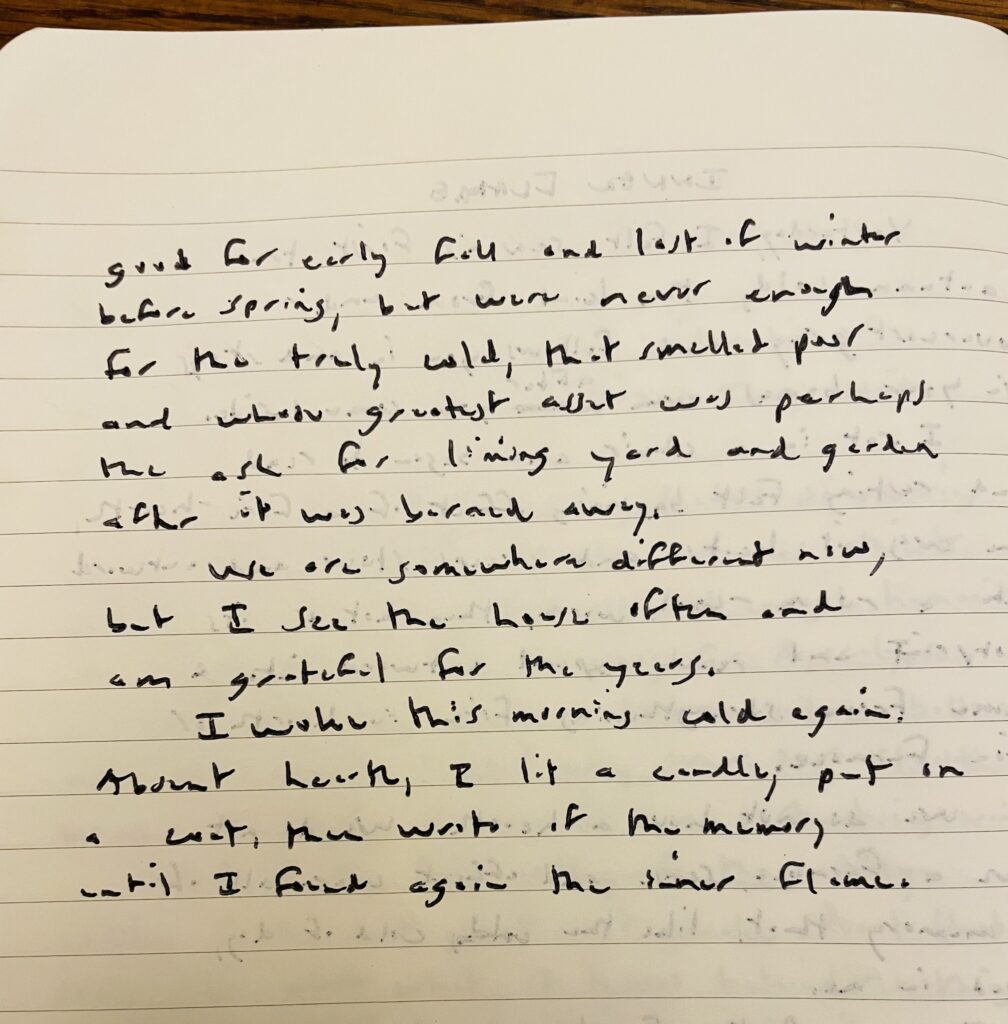 good for early fall and last of winter
before spring, but were never enough
for the truly cold, that smelled poor
and whose greatest asset was perhaps
the ash for liming yard and garden
after it was burned away.
We are somewhere different now,
but I see the house often and
am grateful for the years.
I woke this morning cold again.
Absent hearth, I lit a candle, put on
a coat, then wrote of the memory
until I found again the inner flame.